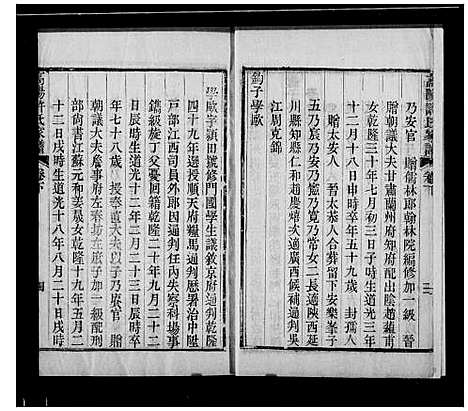 高陽許氏家譜 卷下
乃安官 贈儒林郎翰林院編修加一級 晉
贈朝議大夫甘肅蘭州府知府配出陰趙藉甫
女乾隆三十年七月初三日子時生道光三年
十二月十八日申時卒年五十九歲 封孺人
晉贈太安人 晉太恭人合葬留下安樂峯子
五乃穀乃安乃 乃寬乃常女二長適陝西延
川縣知縣仁和趙慶熺次適廣西候補通判吳
江周克錦
鈞子學歐
學歐字潁田號修門國學生議敘京府通判乾隆
四十九年選授順天府糧馬通判歷署治中陞
戶部江西司員外郎因通判任內失察科場事
鐫級旋丁父憂回籍乾隆二十年九月二十二
日辰時生道光十二年二月二十三日辰時卒
年七十八歲 授奉直大夫以子乃賡官 贈
朝議大夫詹事府左春坊左庶子加一級配刑
部尚書江蘇元和姜晟女乾隆十九年五月二
十二日戌時生道光十八年八月二十日戌時
高陽許氏家譜 卷下 四